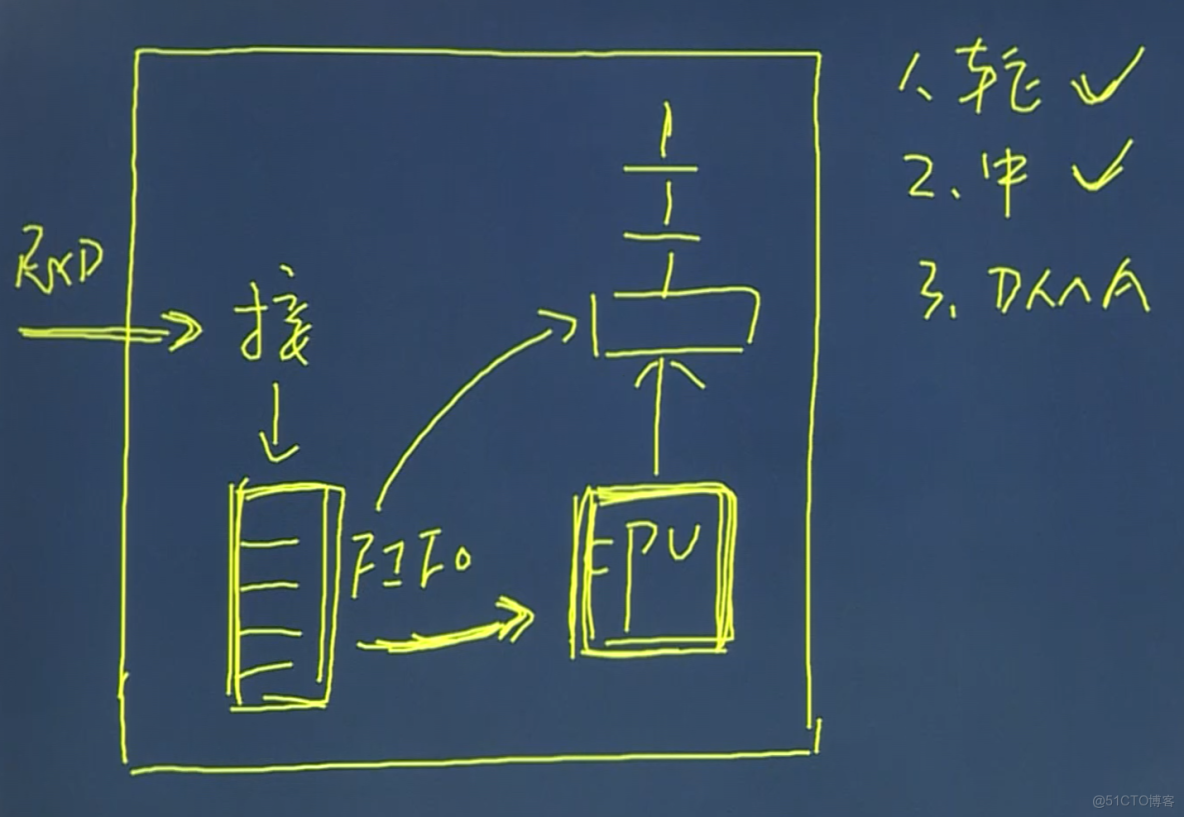 1、轮 ✓
2、中 ✓
RXD
3. DMA
接
FIFO
CPU
@51CTO博客